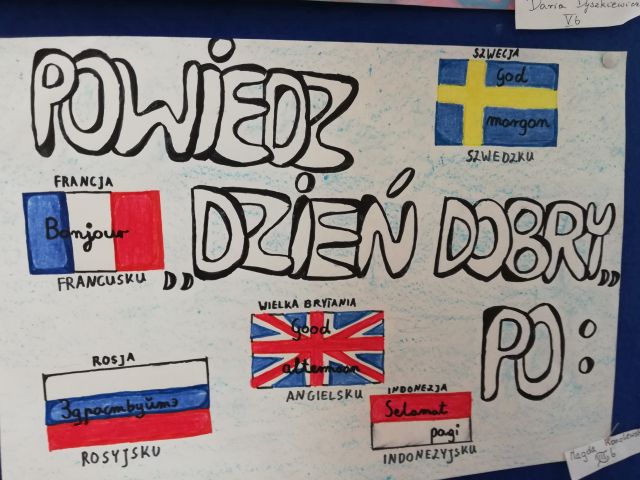 Daria Dyszkiewicz
Vb
POWIEDZ
„DZIEŃ DOBRY„
PO:
SZWECJA
God
morgon
SZWEDZKU
FRANCJA
Bonjour
FRANCUSKU
WIELKA BRYTANIA
Good
afternoon
ANGIELSKU
ROSJA
Здраствуйтэ
ROSYJSKU
INDONEZJA
Selamat
pagi
INDONEZYJSKU
Magda